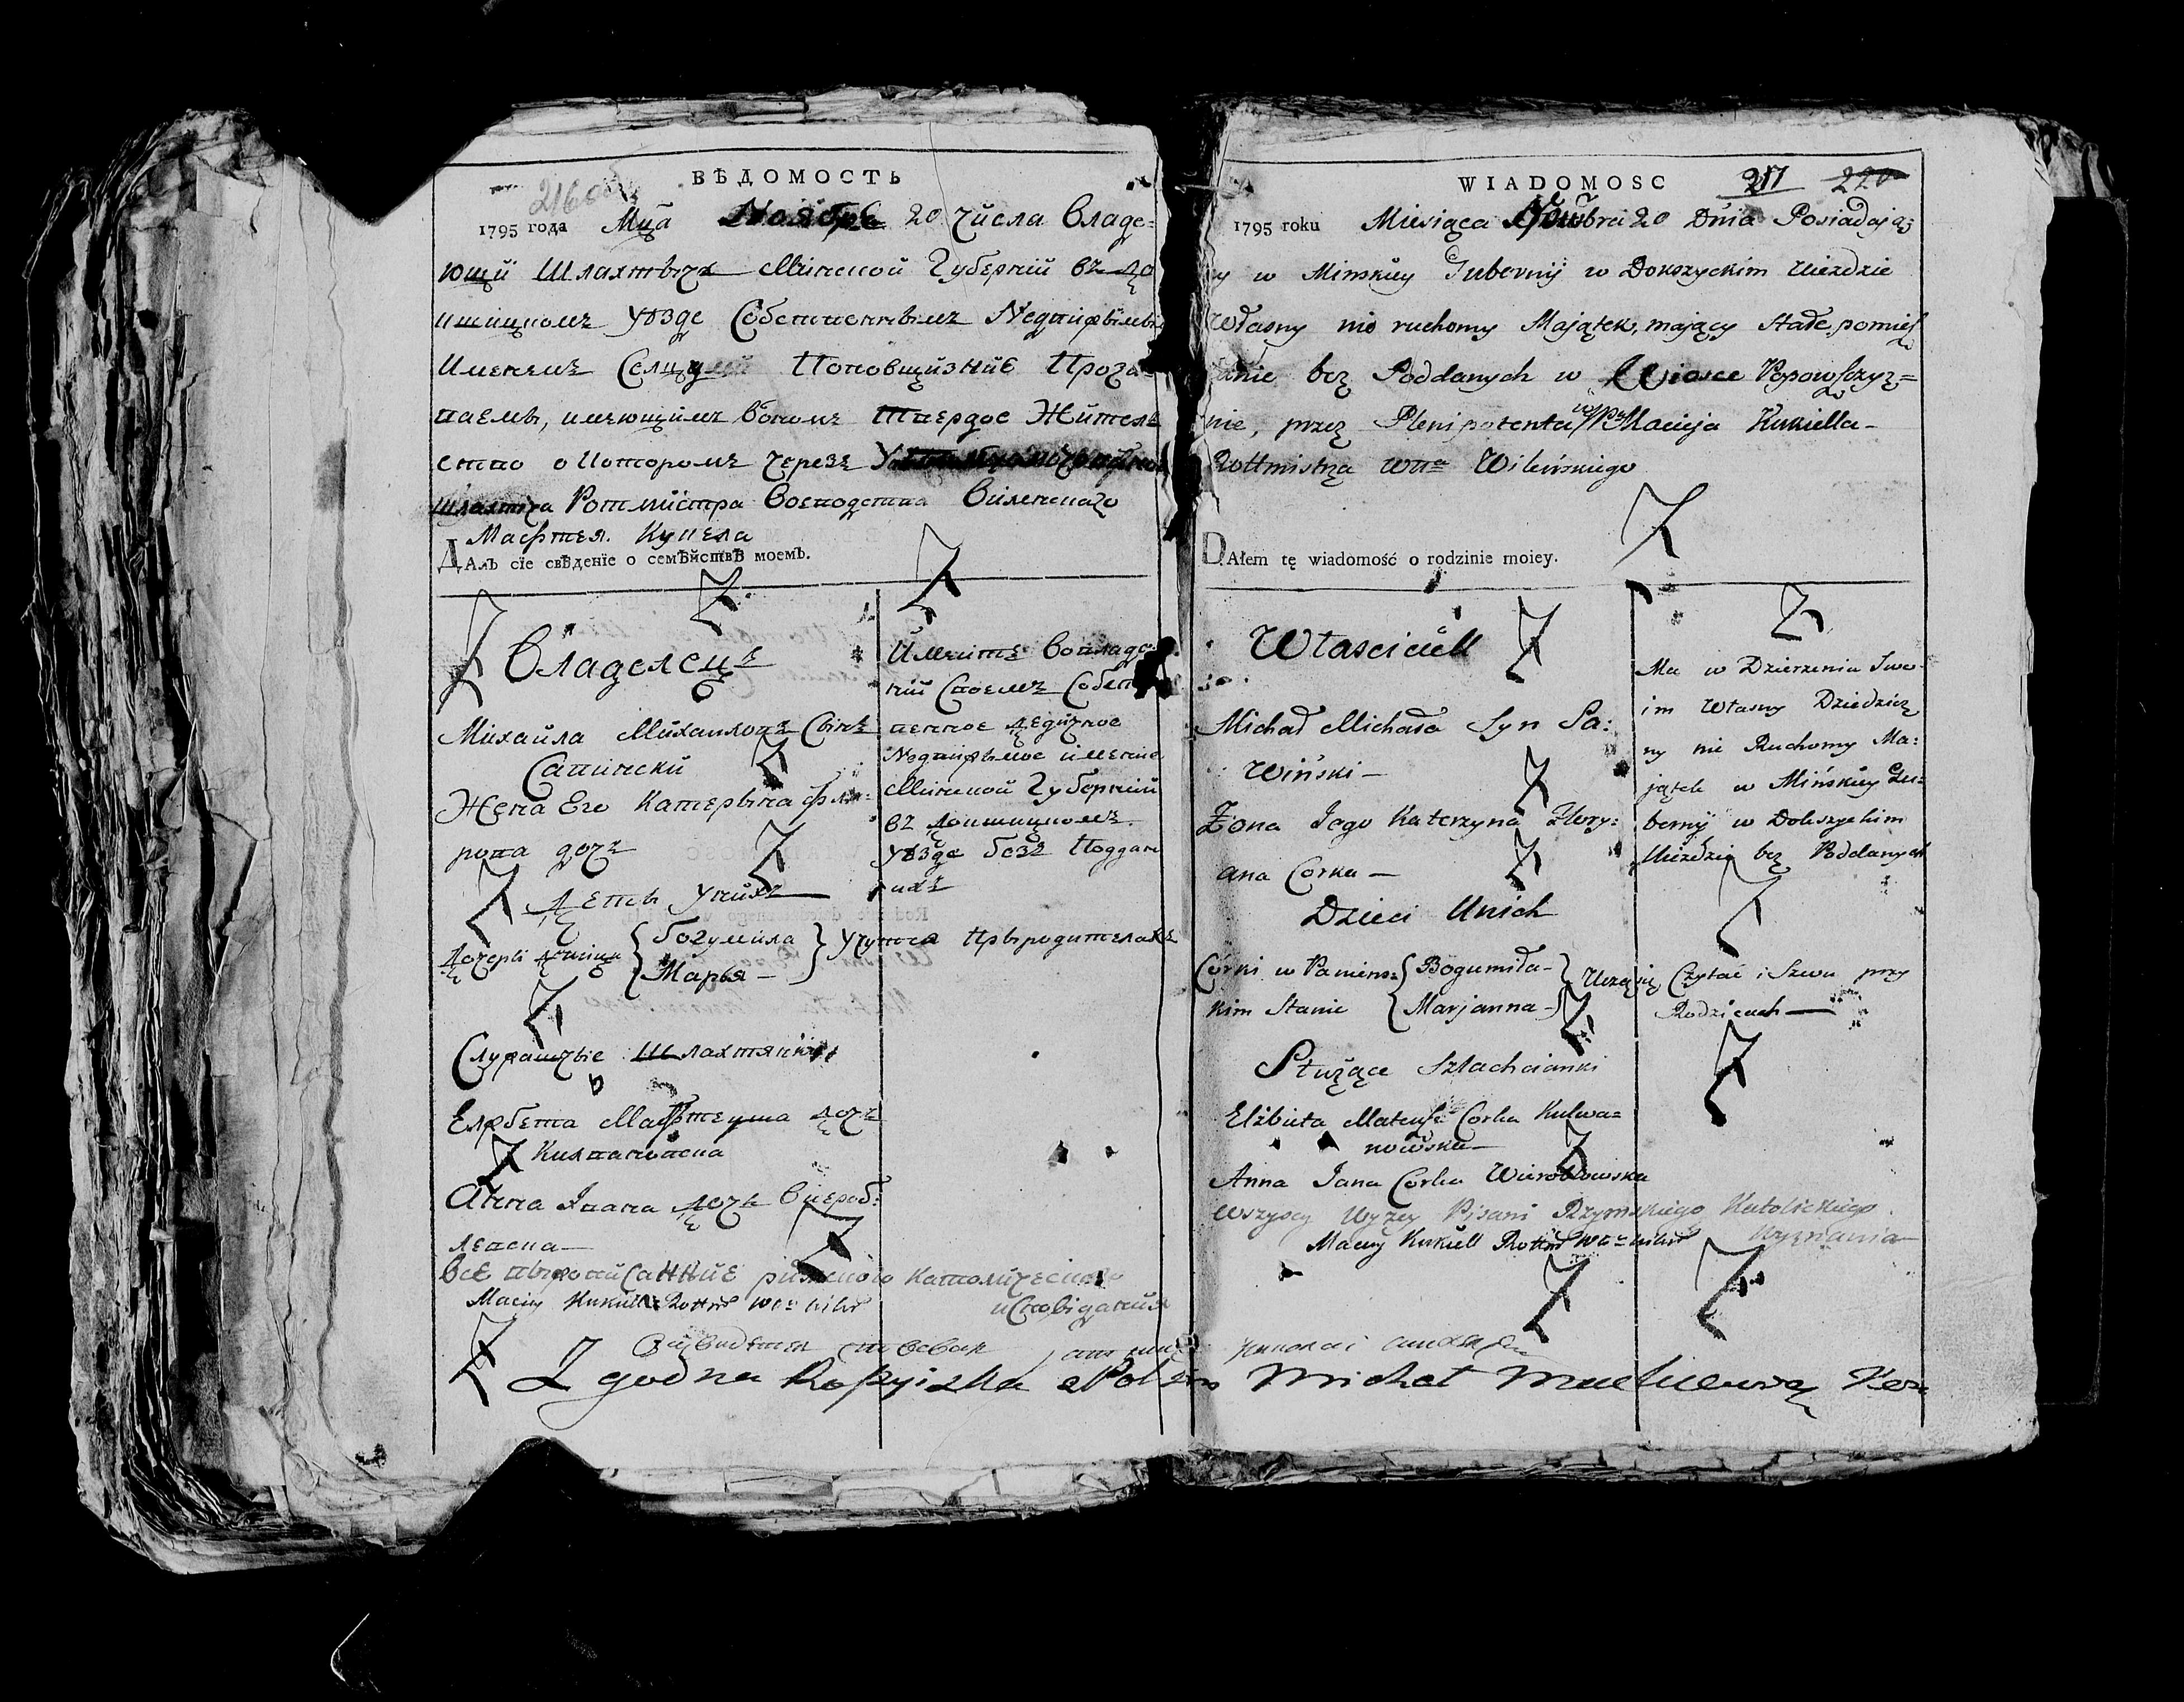 ВѢДОМОСТЬ
1795 года Мца Ноября 20 числа владе-
ющи Шляхтычъ Минской Губернии въ До
кшицкомъ Уѣзде Собственнымъ Недвижимы
Имениемъ Селце Поповщизние Проза-
ваемы, имеющимъ вономъ твердое Жителъ
ство о Которомъ черезъ
Шляхтича Ротмистра Воеводства Виленскаго
Мафтея Кукела
ДАлъ сїе свѣденїе о семѣйствѣ моемъ.
Владелецъ
Михайла Михаиловъ Синъ
Савински
Жена Его Катерына Фло-
рова дочъ
Дети Унихъ
Дочери девици { Богумила
Марья }
Учутся Прыродителахъ
Служащые Шляхтянки
Елжбета Мафтеуша дочъ
Кулвановска
Анна Ивана дочъ Вероб-
левска
Все вышеписанние римского католического
исповидания
Maciey Kukiell Rottm Wa Wilen
Имеитъ вовладе
нии Своемъ Собст
венное дедичное
Недвижимое имение
Минской Губернии
въ Докшицкомъ
уѣзде безъ Поддан
ихъ
Zgodna Kopyiska
WIADOMOSC 217 220
1795 roku Miesiąca Nowbra 20 Dnia Posiadają:
cy w Minskiey Gubernij w Dokszyckim Uiezdzie
Własny nie ruchomy Majątek, mający Stałe pomiesz
kanie bez Poddanych w Wiosce Popowszczyz=
nie, przez Plenipotenta WJP Macieja Kukiella-
Rottmistrza wttwa Wileńskiego
DAłem tę wiadomość o rodzinie moiey.
Własciciell
Michał Michała Syn Sa:
wiński-
Żona Jego Katerzyna Flory:
ana Corka-
Dzieci Unich
Córki w Panieńs:
kim Stanie
{ Bogumiła-
{ Marjanna-
Uczą się Czytać i Szwu przy
Rodzicach
Służące Szlachcianki
Elżbieta Mateusza Corka Kulwa=
nowska-
Anna Jana Corka Wierobłowska
Wszyscy Wyżey Pisani Rzymskiego Katolickiego
Wyznania
Maciey Kukiell Rottm Wa Wilen
Ma w Dzierżeniu Swo-
im Własny Dziedzicz
ny nie Ruchomy Ma:
jątek w Mińskiey Gu-
bernij w Dokszyckim
Uiezdzie bez Poddanych
Michał